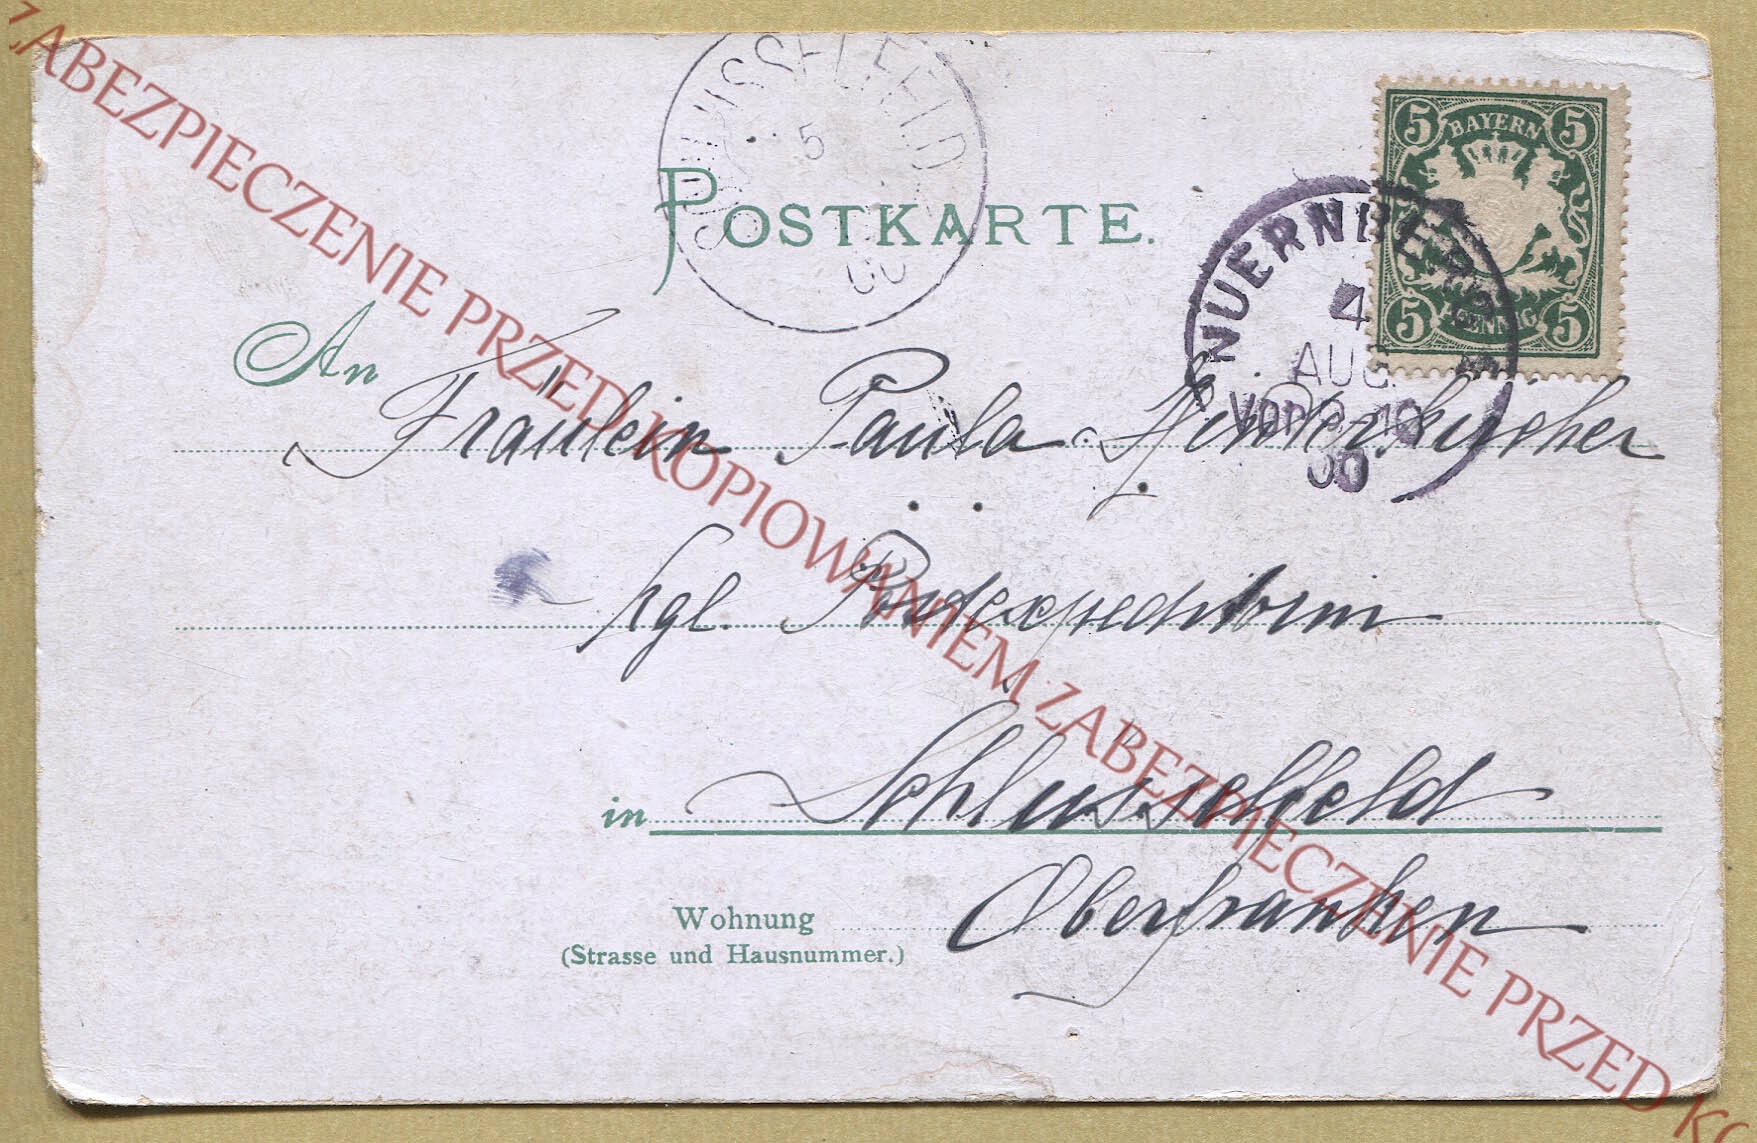 ZABEZPIECZENIE PRZED KOPIOWANIEM ZABEZPIECZENIE PRZED KO
SCHLÜSSELFELD
5
00
BAYERN
5 5
5 PFENNIG 5
NUERNBERG
4
AUG.
00
POSTKARTE.
An Fräulein Paula Hinterkircher
kgl. Postexpeditorin
in Schlüsselfeld
Wohnung Oberfranken
(Strasse und Hausnummer.)